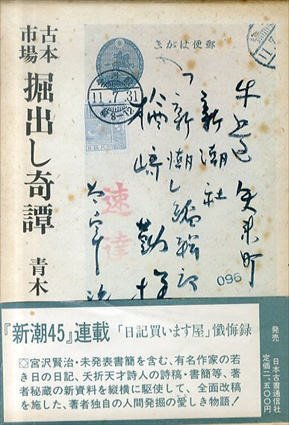 古本市場
掘出し奇譚
青木
郵便はがき
11.7.31
牛込区矢来町
新潮社
「新潮」編輯部
楢崎勤様
速達
太宰治
096
『新潮45』連載「日記買います屋」懺悔録
◎宮沢賢治・未発表書簡を含む、有名作家の若
き日の日記、夭折天才詩人の詩稿・書簡等、著
者秘蔵の新資料を縦横に駆使して、全面改稿
を施した、著者独自の人間発掘の愛しき物語！
発売 日本古書通信社
定価二、五〇〇円